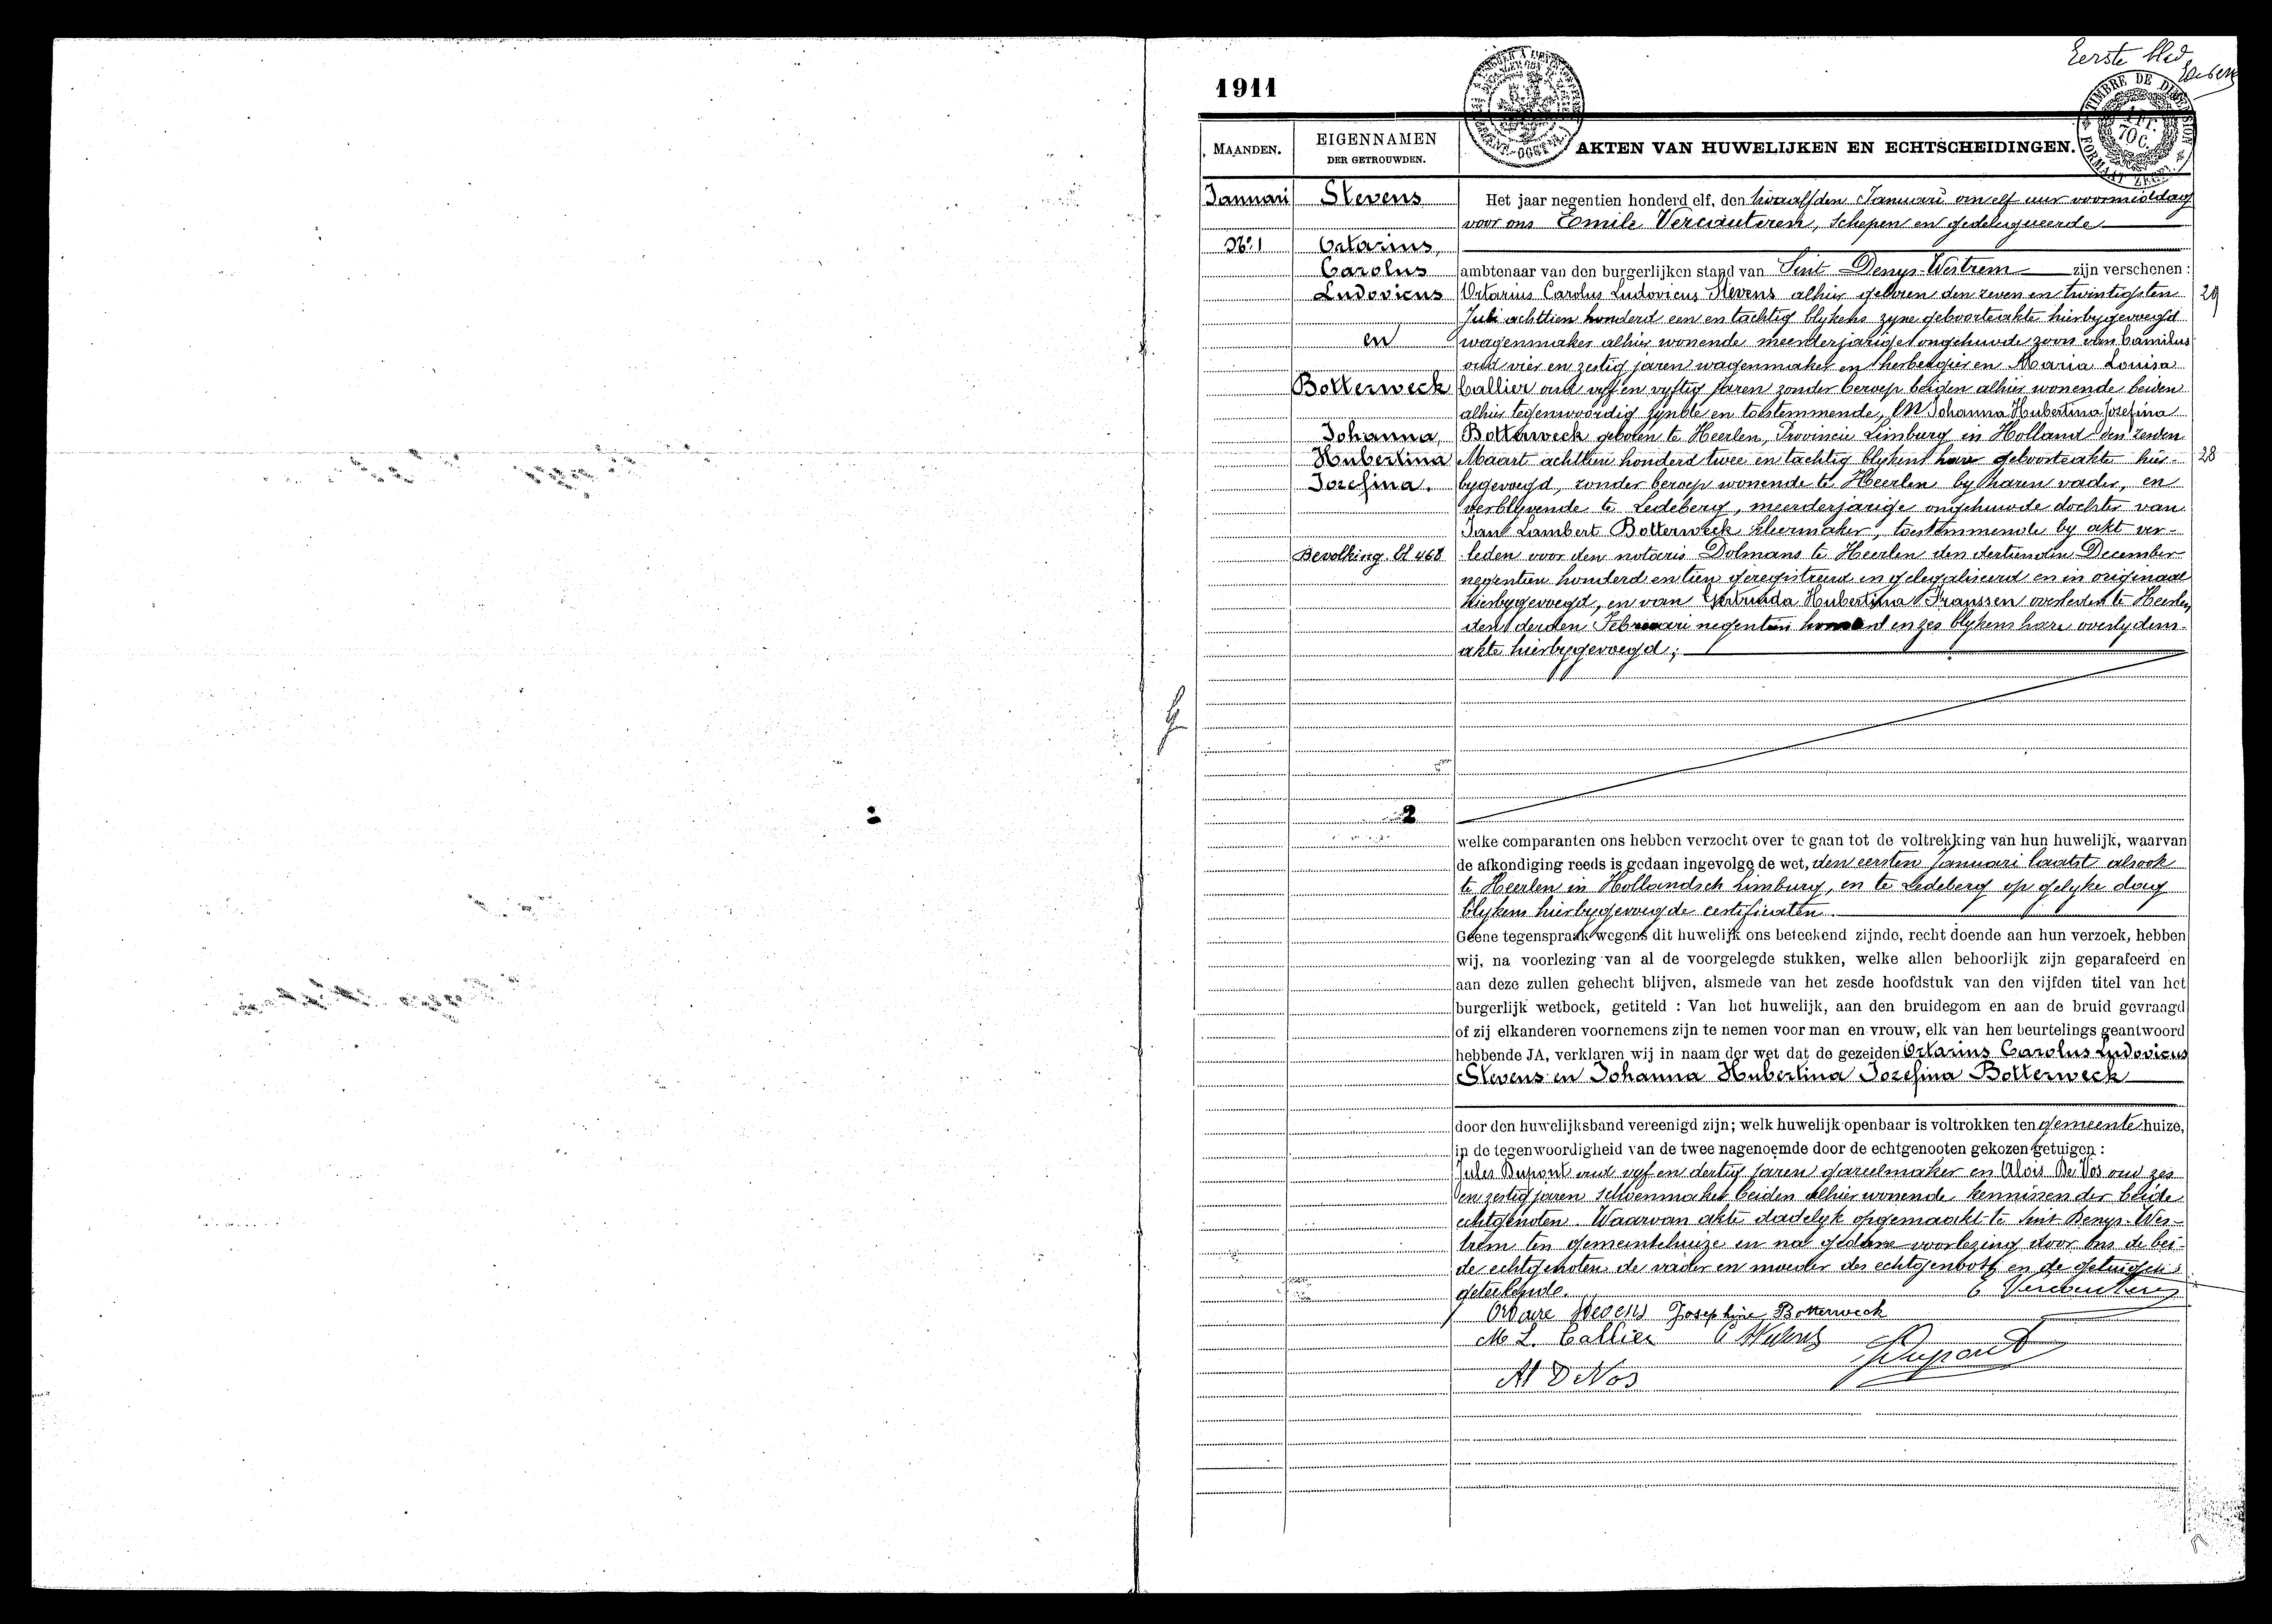 Eerste blad
1911
TIMBRE DE DIMENSION
1 FR.
70 C.
FORMAAT ZEGEL
MAANDEN.
EIGENNAMEN
DER GETROUWDEN.
AKTEN VAN HUWELIJKEN EN ECHTSCHEIDINGEN.
Januari
No 1
Stevens
Octarius,
Carolus
Ludovicus
en
Botterweck
Johanna,
Hubertina
Jozefina.
Bevolking. bl 468
Het jaar negentien honderd elf, den twaalfden Januari om elf uur voormiddag
voor ons Emile Vercauteren, schepen en gedelegueerde
ambtenaar van den burgerlijken stand van Sint Denys-Westrem zijn verschenen :
Octarius Carolus Ludovicus Stevens alhier geboren den zeven en twintigsten 29
Juli achttien honderd een en tachtig blykens zyne geboorteakte hierbygevoegd
wagenmaker alhier wonende meerderjarige ongehuwde zoon van Camilus
oud vier en zestig jaren wagenmaker en herbergier en Maria Louisa
Callier oud vyf en vyftig jaren zonder beroep beiden alhier wonende beiden
alhier tegenwoordig zynde en toestemmende, en Johanna Hubertina Jozefina
Botterweck geboren te Heerlen, Provincie Limburg in Holland den zesden
Maart achttien honderd twee en tachtig blykens hare geboorteakte hier- 28
bygevoegd, zonder beroep wonende te Heerlen by haren vader, en
verblyvende te Ledeberg, meerderjarige ongehuwde dochter van
Jan Lambert Botterweck kleermaker, toestemmende by akt ver-
leden voor den notaris Dolmans te Heerlen den dertienden December
negentien honderd en tien geregistreerd en gelegaliseerd en in originaal
hierbygevoegd, en van Gertruda Hubertina Franssen overleden te Heerlen
den derden Februari negentien honderd en zes blykens hare overlydens-
akte hierbygevoegd ;
2
welke comparanten ons hebben verzocht over te gaan tot de voltrekking van hun huwelijk, waarvan
de afkondiging reeds is gedaan ingevolge de wet, den eersten Januari laatst alsook
te Heerlen in Hollandsch Limburg, en te Ledeberg op gelyke dag
blykens hierbygevoegde certificaten.
Geene tegenspraak wegens dit huwelijk ons beteekend zijnde, recht doende aan hun verzoek, hebben
wij, na voorlezing van al de voorgelegde stukken, welke allen behoorlijk zijn geparafeerd en
aan deze zullen gehecht blijven, alsmede van het zesde hoofdstuk van den vijfden titel van het
burgerlijk wetboek, getiteld : Van het huwelijk, aan den bruidegom en aan de bruid gevraagd
of zij elkanderen voornemens zijn te nemen voor man en vrouw, elk van hen beurtelings geantwoord
hebbende JA, verklaren wij in naam der wet dat de gezeiden Octarius Carolus Ludovicus
Stevens en Johanna Hubertina Jozefina Botterweck
door den huwelijksband vereenigd zijn; welk huwelijk openbaar is voltrokken ten gemeente huize,
in de tegenwoordigheid van de twee nagenoemde door de echtgenooten gekozen getuigen :
Jules Dupont oud vyf en dertig jaren gareelmaker en Alois De Vos oud zes
en zestig jaren schoenmaker beiden alhier wonende kennissen der beide
echtgenoten. Waarvan akte dadelyk opgemaakt te Sint Denys-Wes-
trem ten gemeentehuize en na gedane voorlezing door ons de bei-
de echtgenoten de vader en moeder des echtgenoots en de getuigen
geteekende.
E Vercauteren
Octave Stevens Josephine Botterweck
M L. Callier C Stevens
J Dupont
Al De Vos